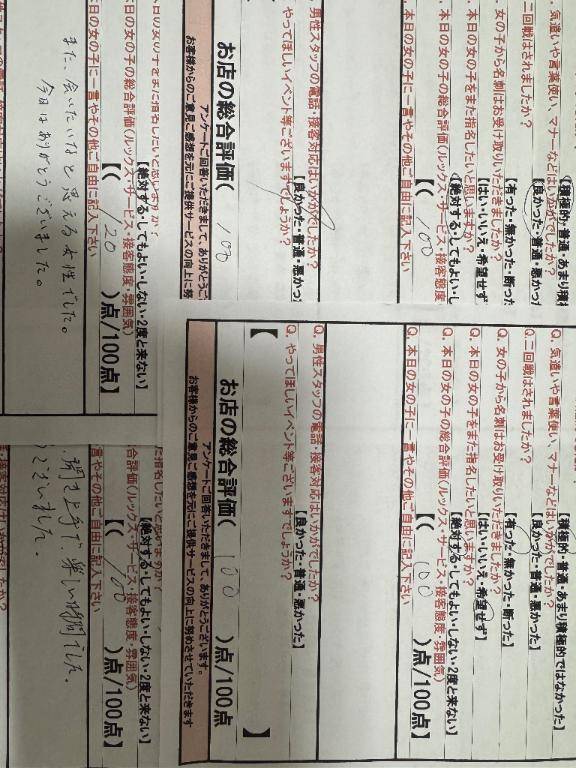 Q. 気遣いや言葉使い、マナーなどはいかがでしたか?
【良かった・普通・悪かっ
Q. 二回戦はされましたか?
【積極的・普通・あまり積極
Q. 女の子から名刺はお受け取りいただけましたか?
【有った・無かった・断った
Q. 本日の女の子をまた指名したいと思いますか?
【はい・いいえ・希望せず
Q. 本日の女の子の総合評価(ルックス・サービス・接客態度・
【絶対する・してもよい・し
【( 100
Q. 本日の女の子に一言やその他ご自由に記入下さい
Q. 男性スタッフの電話・接客対応はいかがでしたか?
【良かった・普通・悪かっ
Q. やってほしいイベント等ございますでしょうか?
お店の総合評価( 100
アンケートご回答いただきまして、ありがとうご
お客様からのご意見ご感想を元にご提供サービスの向上に努
本日の女の子をまた指名したいと思いますか?
【絶対する・してもよい・しない・2度と来ない】
日の女の子の総合評価(ルックス・サービス・接客態度・雰囲気)
【( 120 )点/100点】
日の女の子に一言やその他ご自由に記入下さい
また、会いたいなと思える女性でした。
今日はありがとうございました。
Q. 気遣いや言葉使い、マナーなどはいかがでしたか?
【良かった・普通・悪かった】
Q. 二回戦はされましたか?
【積極的・普通・あまり積極的ではなかった】
Q. 女の子から名刺はお受け取りいただけましたか?
【有った・無かった・断った】
Q. 本日の女の子をまた指名したいと思いますか?
【はい・いいえ・希望せず】
Q. 本日の女の子の総合評価(ルックス・サービス・接客態度・雰囲気)
【絶対する・してもよい・しない・2度と来ない】
【( 100 )点/100点】
Q. 本日の女の子に一言やその他ご自由に記入下さい
Q. 男性スタッフの電話・接客対応はいかがでしたか?
【良かった・普通・悪かった】
Q. やってほしいイベント等ございますでしょうか?
【 】
お店の総合評価( 100 )点/100点
アンケートご回答いただきまして、ありがとうございます。
お客様からのご意見ご感想を元にご提供サービスの向上に努めさせていただきます
に指名したいと思いますか?
【絶対する・してもよい・しない・2度と来ない】
合評価(ルックス・サービス・接客態度・雰囲気)
【( 100 )点/100点】
一言やその他ご自由に記入下さい
聞き上手で、楽しい時間でした。
ございました。
・接客対応はいかがでしたか?